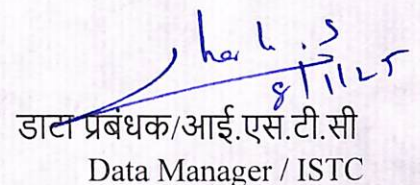 8/1/25
डाटा प्रबंधक/आई.एस.टी.सी
Data Manager / ISTC